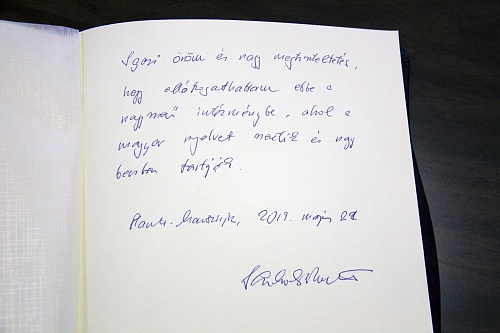 Igazi öröm és nagy megtiszteltetés,
hogy ellátogathattam ebbe a
nagyszerű intézménybe, ahol a
magyar nyelvet és nagy
becsben tartják.
2019. május 21